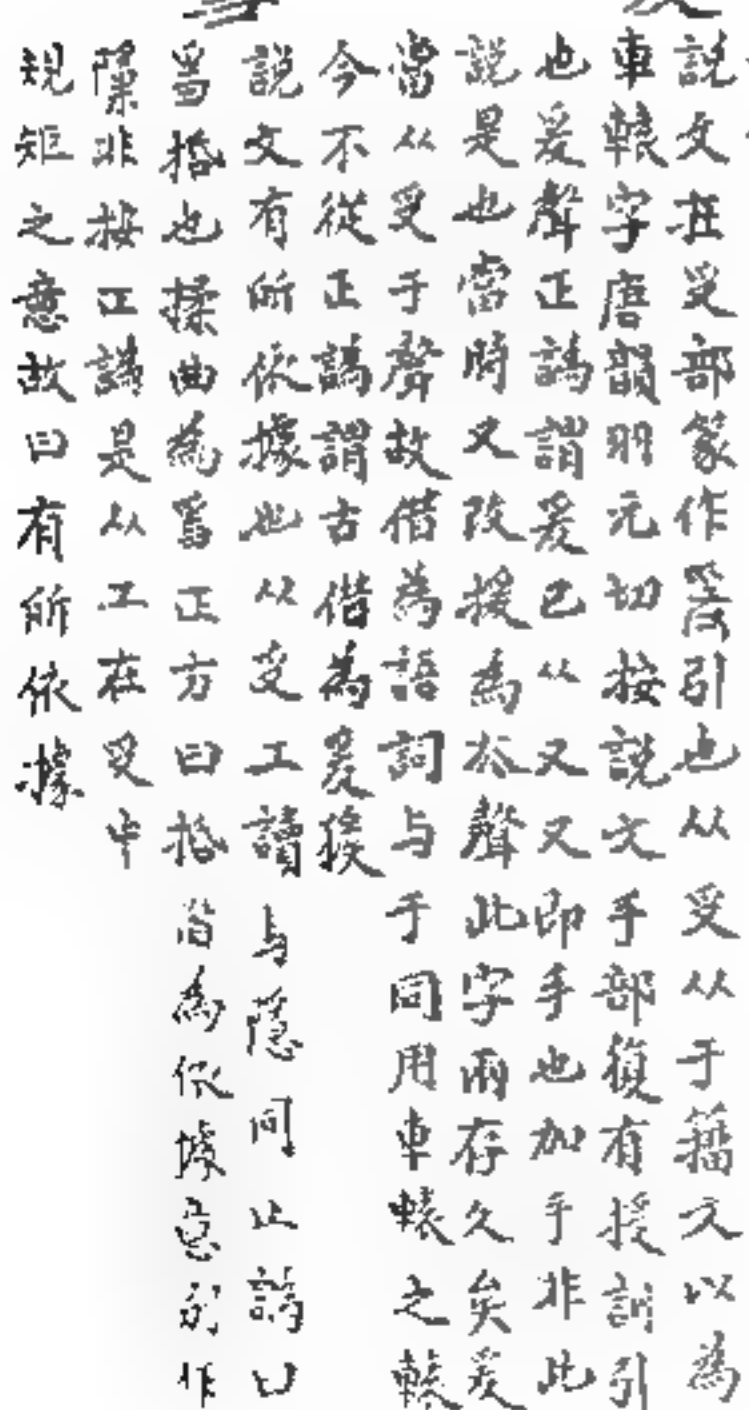 說文在𠬪部篆作爰引也从𠬪从于籀文以為
車轅字唐韻羽元切按說文手部復有援訓引
也爰聲正譌謂爰已从又又即手也加手非此
說是也當時又改援為 聲此字兩存久矣爰
當从𠬪于聲故借為語詞与于同用車轅之轅
今不從正譌謂古借為爰猨
說文有所依據也从𠬪工讀与隱同正譌曰
𤔌 也揉曲為𤔌正方曰 皆為依據意別作
檃非按正譌是从工在𠬪中
規矩之意故曰有所依據